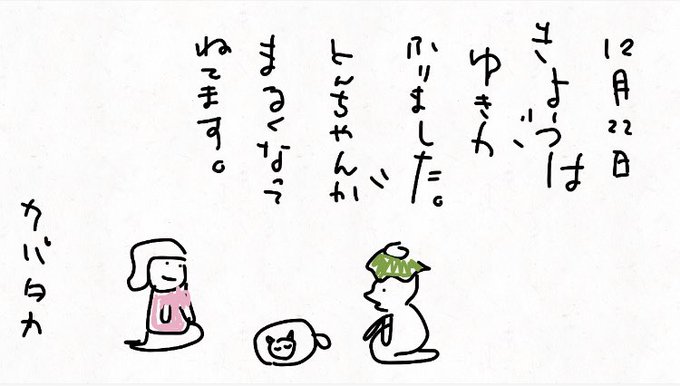 12月22日
きょうは
ゆきが
ふりました。
とんちゃんが
まるくなって
ねてます。
カバタカ